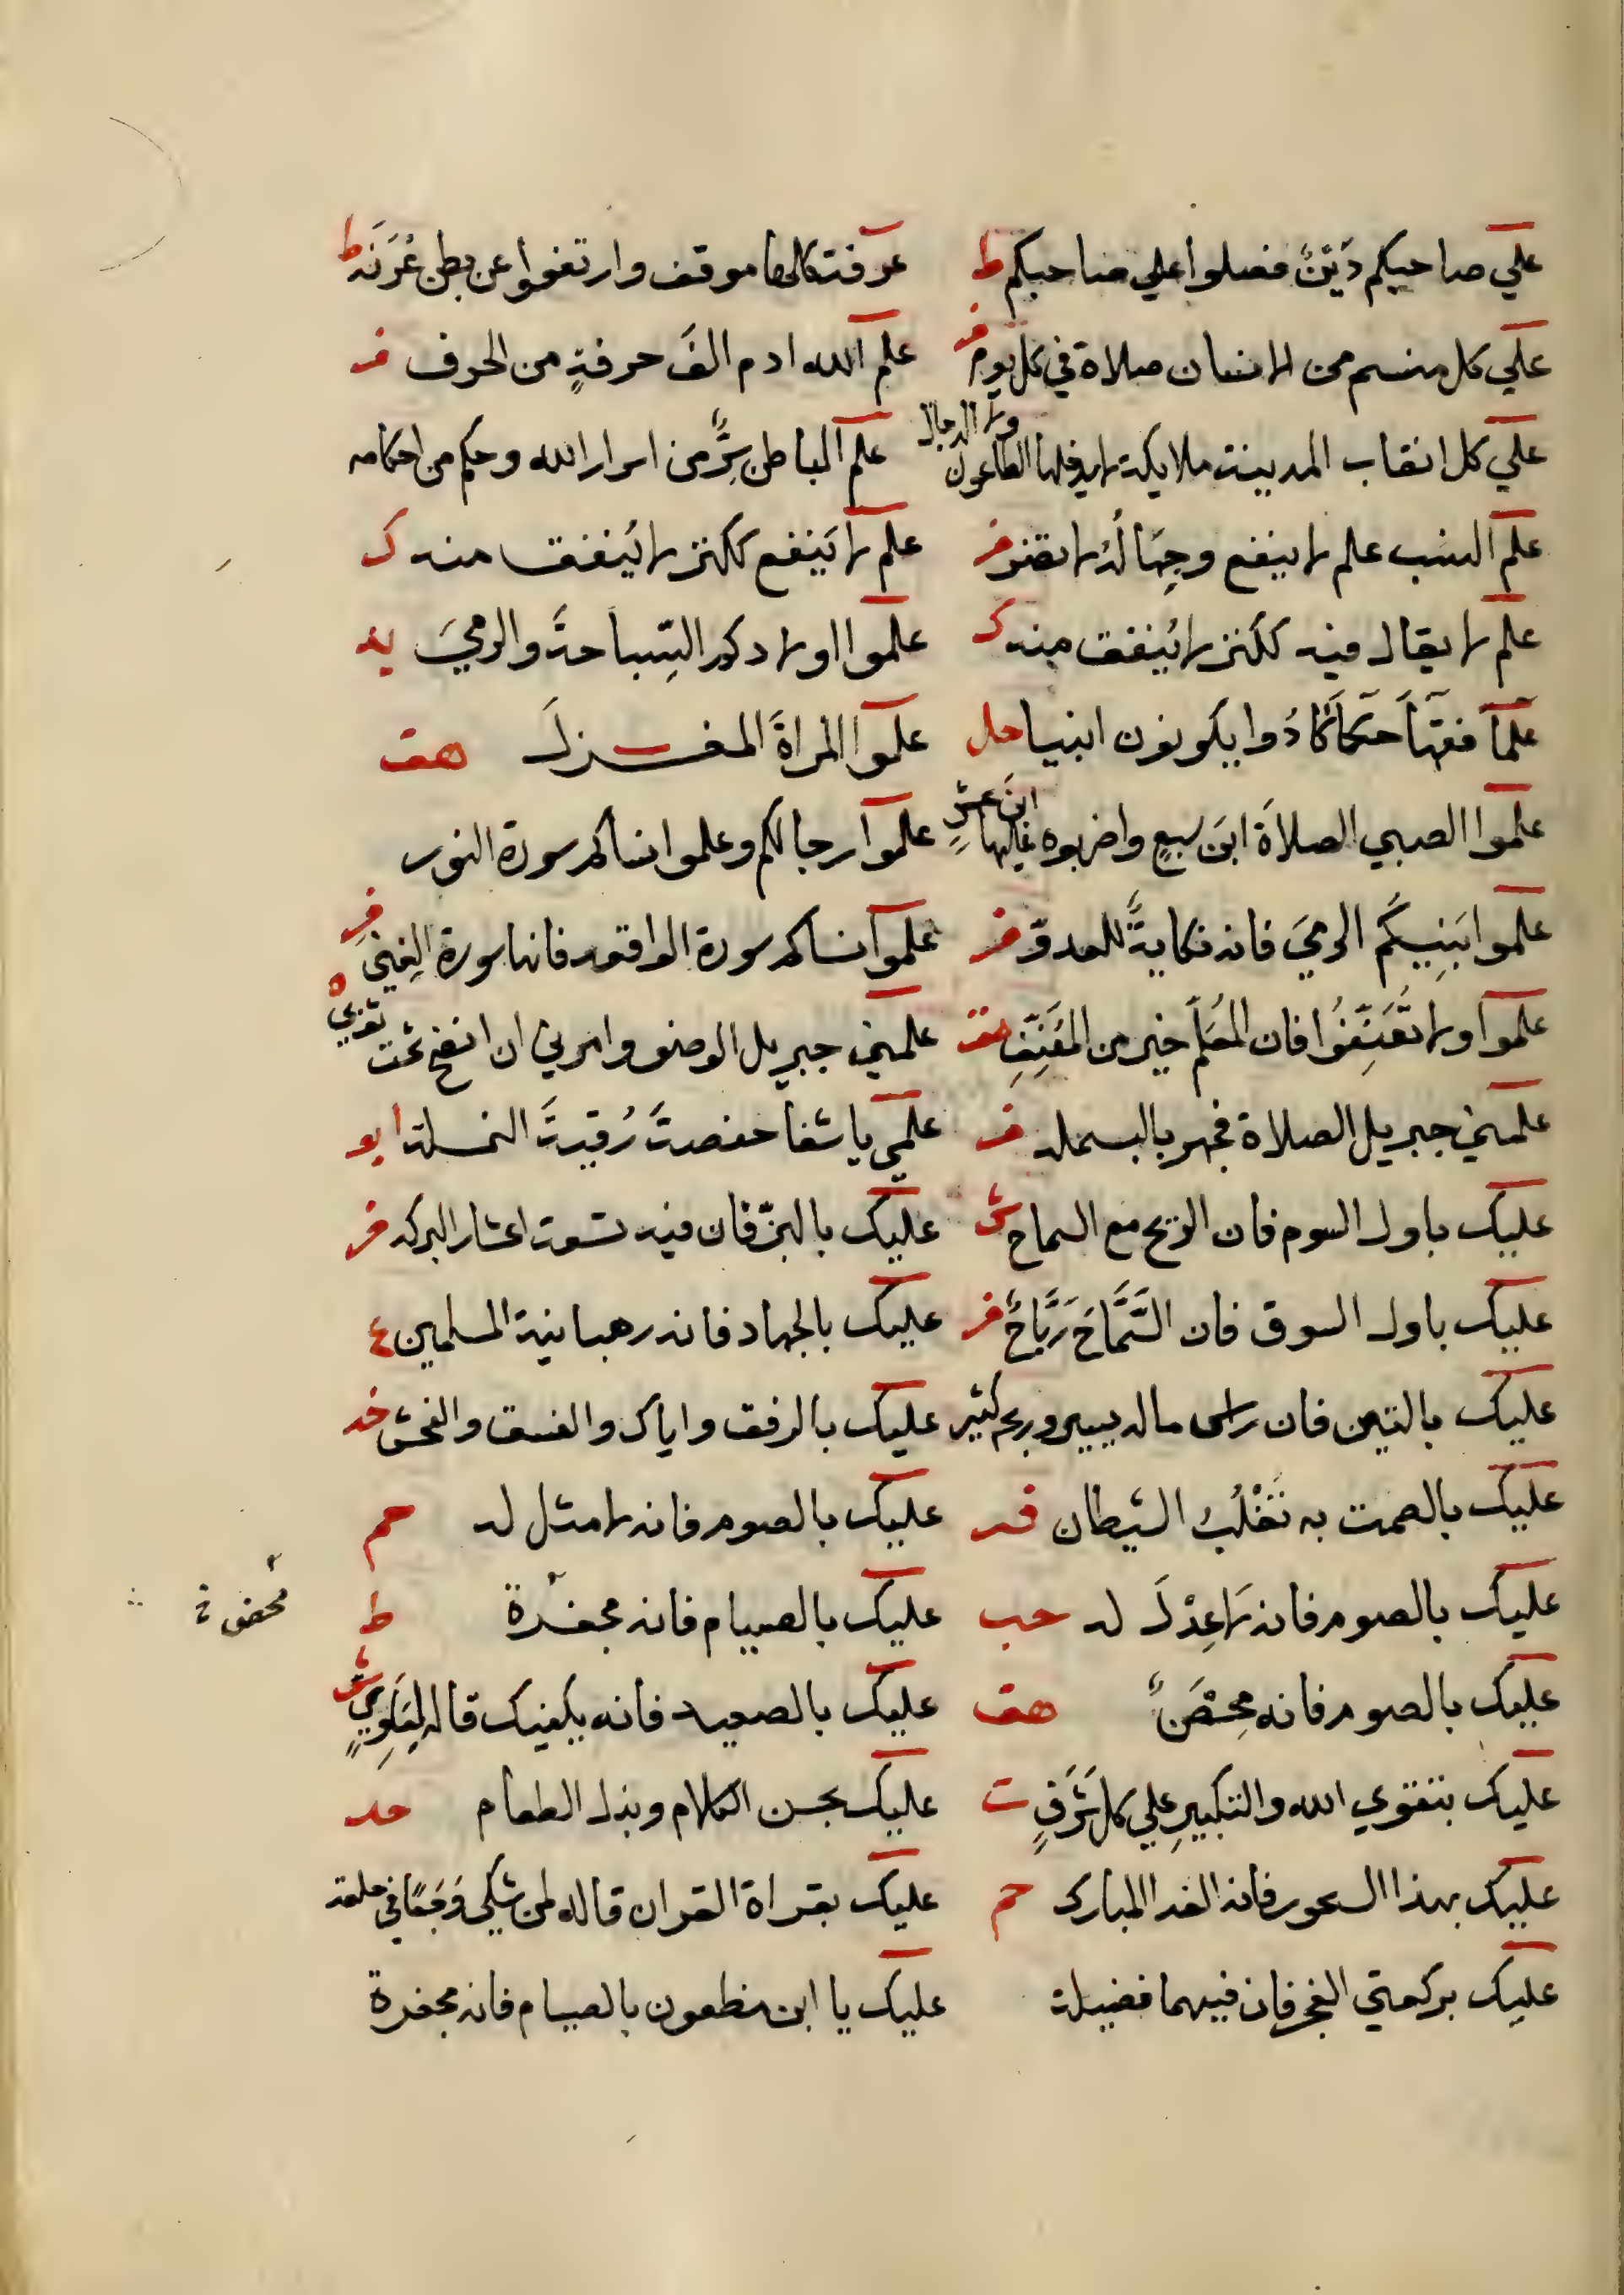 علي صاحبكم دَيْنٌ فصلوا علي صاحبكم ط
عرفة كلها موقف وارتفعوا عن بطن عُرَنَه ط
علي كل منسم من الانسان صلاة في كل يوم فر
علم الله ادم الفَ حرفةٍ من الحرف فر
علي كل انقاب المدينة ملايكة لا يدخلها الطاعون ولا الدجال
علم الباطن سِرٌّ من اسرار الله وحكم من احكامه
علم النسب علم لا ينفع وجهالة لا تضر فر
علم لا يَنفع ككنز لا يُنفق منه ك
علم لا يقال فيه ككنز لا يُنفق منه ك
علموا اولادكم السِّباحةَ والرميَ يد
علمآ فقهآ حكمآ كادُوا يكونون انبيا حل
علموا المراةَ المغزلَ هق
علموا الصبي الصلاةَ ابنَ سبعٍ واضربوه عليها ابنَ عشرٍ
علموا رجالكم وعلموا نساكم سورة النور
علموا بَنِيكُم الرميَ فانه نكايةٌ للعدوّ فر
علموا نساكم سورة الواقعه فانها سورة الغِني فر
علموا ولا تُعَنِّفُوا فان المُعَلمَ خير من المُعَنِّفِ هق
علمني جبريل الوضو وامرني ان انضح تحت ثوبي ه
علمني جبريل الصلاة فجهر بالبسمله فر
علمي يا شفا حفصةَ رُقيةَ النملة ابو
عليك باول السوم فان الربح مع السماح ش
عليك بالبزّ فان فيه تسعة اعشار البركه فر
عليك باول السوق فان السَّمَاحَ رَبَاحٌ فر
عليك بالجهاد فانه رهبانية المسلمين ع
عليك بالتين فان راس ماله يسير وربحه كثير
عليك بالرفق واياك والفسق والفحش خد
عليك بالصمت به تَغْلِبُ الشيطان فر
عليك بالصوم فانه لا مثل له حم
عليك بالصوم فانه لَا عِدْلَ له حب
عليك بالصيام فانه مجفرة ط
محضرة
عليك بالصوم فانه مِحْصَنٌ هق
عليك بالصعيد فانه يكفيك قاله ش
عليك بتقوي الله والتكبيرِ علي كل شَرَفٍ ت
عليك بحسن الكلام وبذل الطعام خد
عليك بهذا السحور فانه الغدا المبارك حم
عليك بقراة القران قاله لمن شكي وَجَعًا في حلقه
عليك بركعتي الفجر فان فيهما فضيلة
عليك يا ابن مظعون بالصيام فانه مجفرة